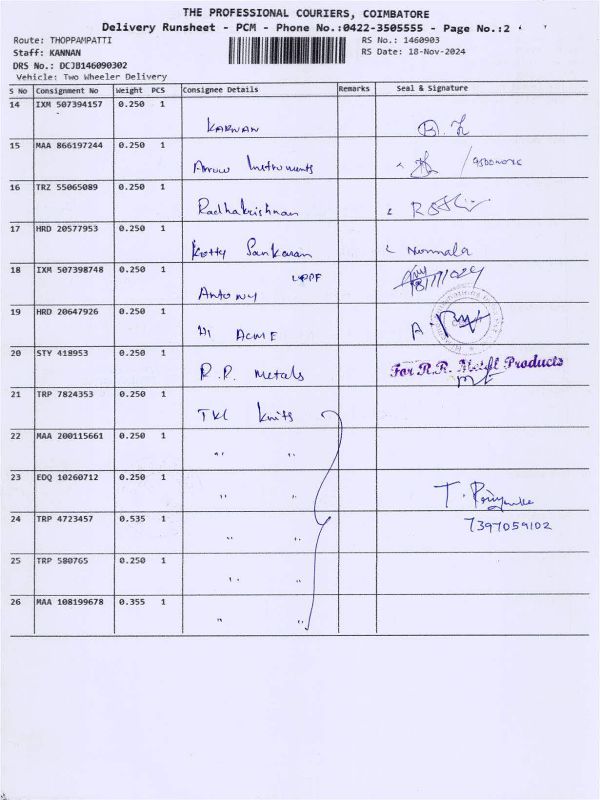 THE PROFESSIONAL COURIERS, COIMBATORE
Delivery Runsheet - PCM - Phone No.:0422-3505555 - Page No.:2
Route: THOPPAMPATTI
RS No.: 1460903
Staff: KANNAN
RS Date: 18-Nov-2024
DRS No.: DCJB146090302
Vehicle: Two Wheeler Delivery
S No Consignment No Weight PCS Consignee Details Remarks Seal & Signature
14 IXM 507394157 0.250 1
KANNAN
15 MAA 866197244 0.250 1
Arrow Instruments
16 TRZ 55065089 0.250 1
Radhakrishnan
17 HRD 20577953 0.250 1
Kotty Sankaran Nirmala
18 IXM 507398748 0.250 1
Antony
19 HRD 20647926 0.250 1
Hi ACME
20 STY 418953 0.250 1
R.R. Metals For R.R. Metal Products
21 TRP 7824353 0.250 1
TKL Knits
22 MAA 200115661 0.250 1
" "
23 EDQ 10260712 0.250 1
" " T. Priyanka
24 TRP 4723457 0.535 1 7397059102
" "
25 TRP 580765 0.250 1
" "
26 MAA 108199678 0.355 1
" "